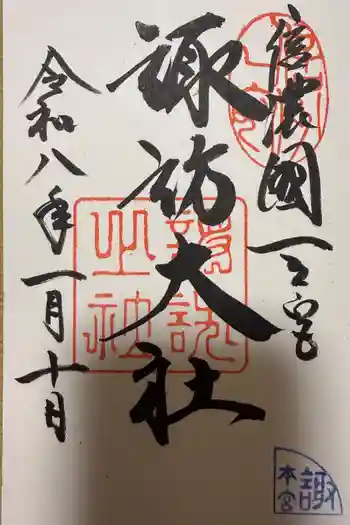 信濃國一之宮
諏訪大社
令和八年一月十日
諏
本宮